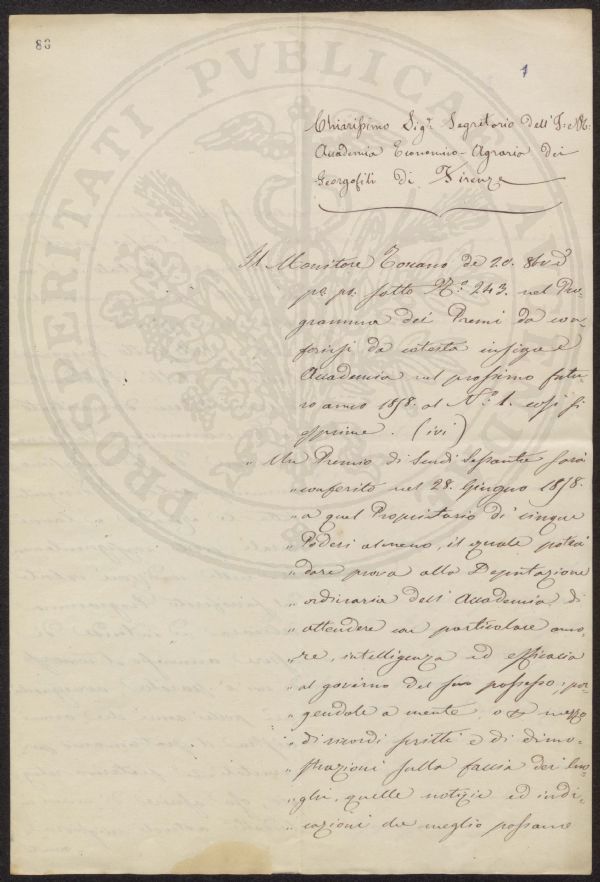 88
1
PROSPERITATI PVBLICAE
Chiarissimo Sigr Segretario dell' I: e R:
Accademia Economico-Agraria dei
Georgofili di Firenze
Il Monitore Toscano de 20.
pº pº. sotto Nº. 243. nel Pro-
gramma dei Premi da con-
ferirsi da cotesta insigne
Accademia nel prossimo futu-
ro anno 1858. al Nº. 1. così si
esprime. (ivi)
„ Un Premio di Scudi Sessanta sarà
„ conferito nel 28. Giugno 1858.
„ a quel Proprietario di cinque
„ Poderi almeno, il quale potrà
„ dare prova alla Deputazione
„ ordinaria dell' Accademia di
„ attendere con particolare amo-
„ re, intelligenza ed efficacia
„ al governo del suo possesso; por-
„ gendole a mente, o a mezzo
„ di ricordi scritti e di dimo-
„ strazioni sulla faccia dei luo-
„ ghi, quelle notizie ed indi-
„ cazioni che meglio possano